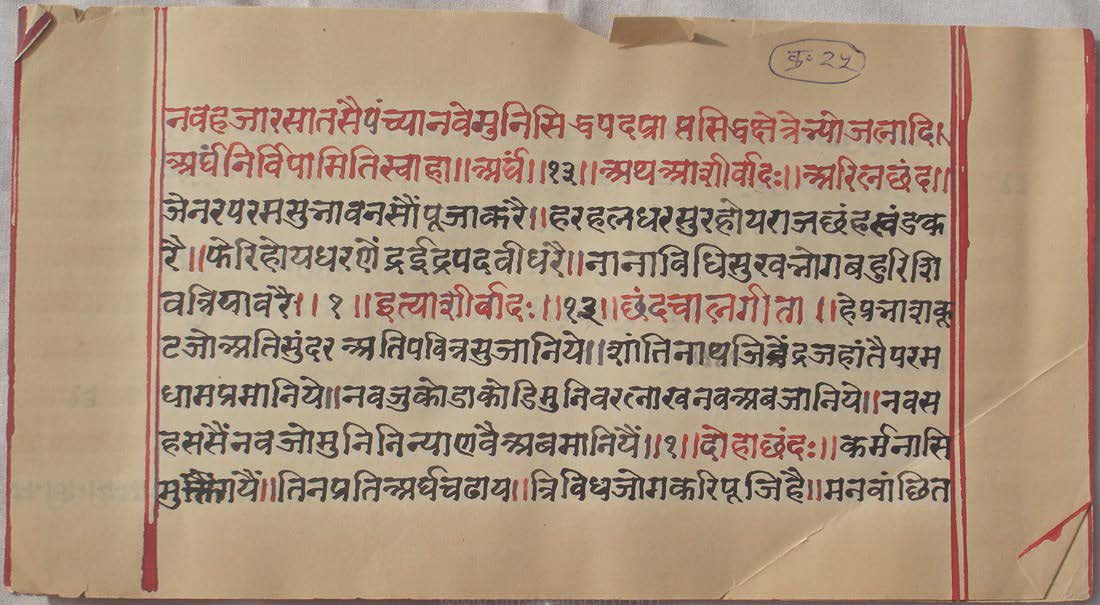 कु॰ २५
नवहजारसातसैपंच्यानवेमुनिसिद्धपदप्राप्तसिद्धक्षेत्रेभ्योजलादि।
अर्घंनिर्विपामितिस्वाहा॥अर्घं॥१३॥अथआशीर्वादः॥अरिलछंद॥
जेनरपरमसुभावनसौंपूजाकरै॥हरहलधरसुरहोयराजछहखंडक
रै॥फेरिहोयधरणेंद्रईद्रपदवीधरै॥नानाविधिसुखभोगबहुरिशि
वत्रियावरै॥१॥इत्याशीर्वादः॥१३॥छंदचालगीता॥हेप्रभाशकू
टजोअतिसुंदरअतिपवित्रसुजानिये॥शांतिनाथजिनेंद्रजहांतैपरम
धामप्रमानिये॥नवजुकोडाकोडिमुनिवरलाखनवअबजानिये॥नवस
हससैंनवजोमुनिनिन्याणवैअबमानियैं॥१॥दोहाछंदः॥कर्मनासि
गयैं॥तिनप्रतिअर्घचढाय॥त्रिविधजोगकरिपूजिहै॥मनवांछित